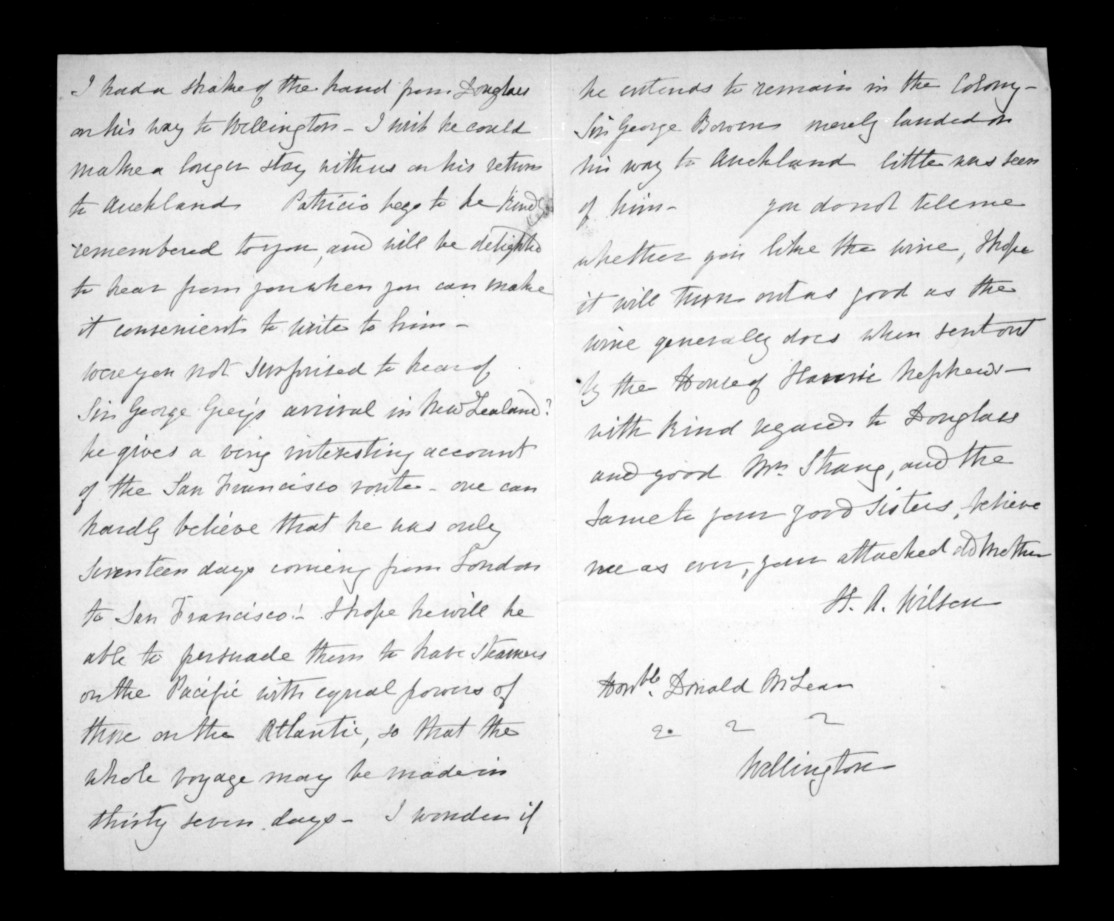 I had a shake of the hand from Douglas
on his way to Wellington - I wish he could
make a longer stay with us on his return
to Auckland Patricio begs to be kindly
remembered to you, and will be delighted
to hear from you when you can make
it convenient to write to him -
were you not surprised to hear of
Sir George Grey's arrival in New Zealand?
he gives a very interesting account
of the San Francisco route - one can
hardly believe that he was only
seventeen days coming from London
to San Francisco! - I hope he will be
able to persuade them to have steamers
on the Pacific with equal powers of
those on the Atlantic, so that the
whole voyage may be made in
thirty seven days - I wonder if
he intends to remain in the Colony -
Sir George Bowen merely landed on
his way to Auckland little was seen
of him - you do not tell me
whether you like the wine, I hope
it will turn out as good as the
wine generally does when sent out
by the House of Nephews -
with kind regards to Douglas
and good Mrs. Strang, and the
same to your good Sisters, believe
me as ever, your attached old Mother
St. A. Wilson
Honble. Donald McLean
Wellington